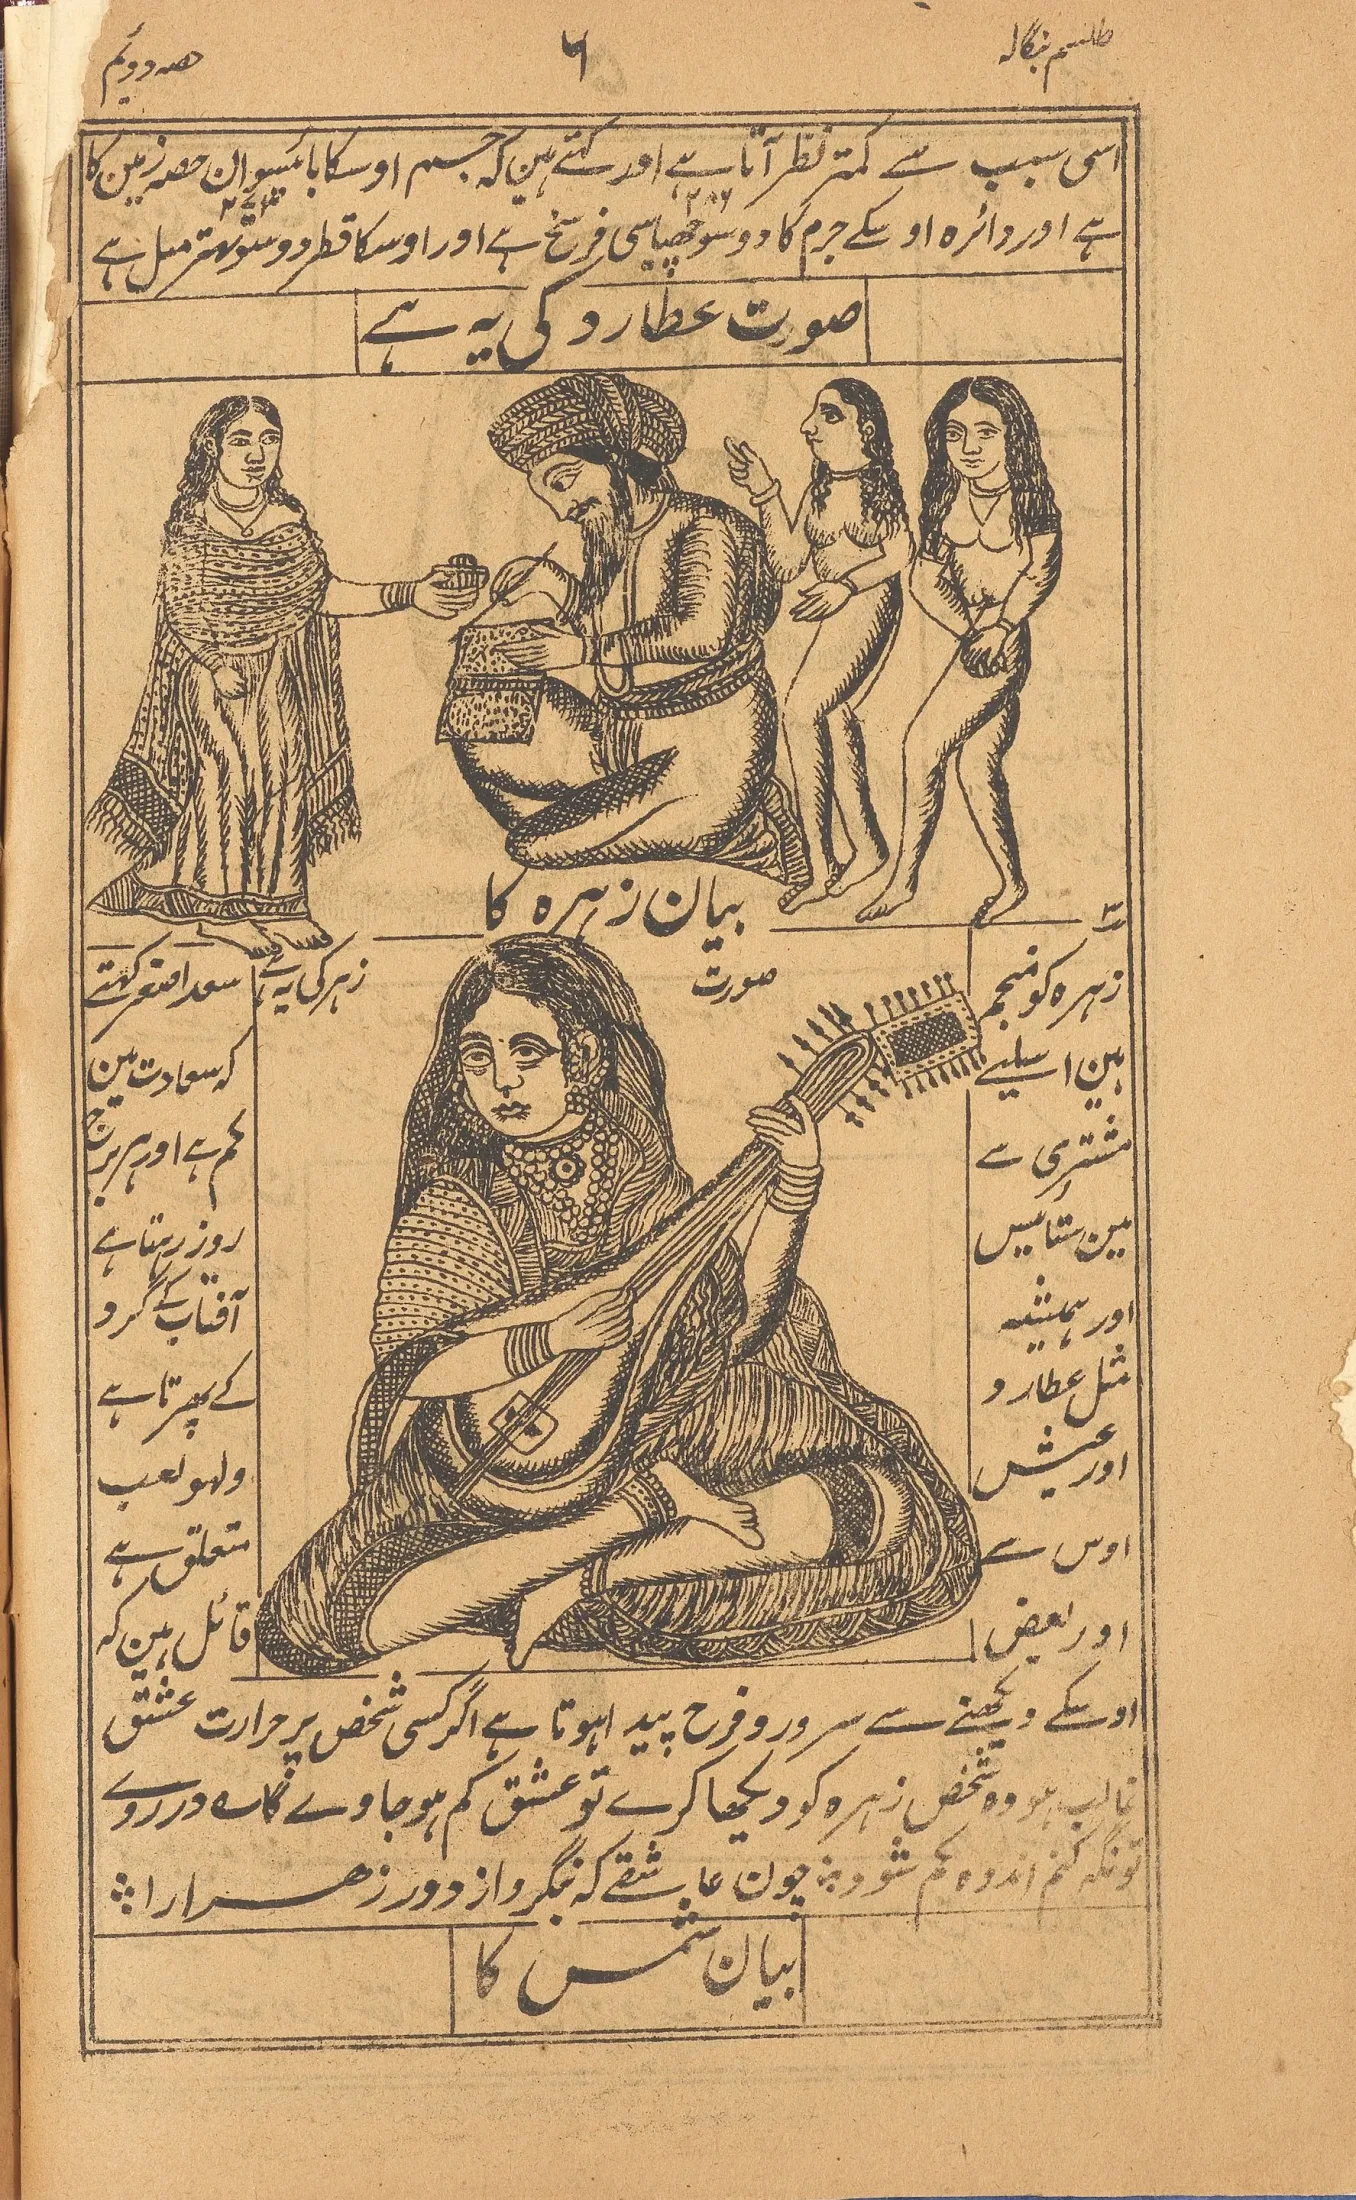 طلسم بنگالہ
۶
حصہ دوئم
اسی سبب سے کمتر نظر آتا ہے اور کہتے ہین کہ جسم اوسکا بائیسوان حصہ زمین کا
۲۸۶
ہے اور دائرہ اوسکے جرم کا دو سو چھیاسی فرسخ ہے اور اوسکا قطر دو سو تہتر میل ہے
صورت عطارد کی یہ ہے
بیان زہرہ کا
صورت
زہرہ کی یہ ہے
زہرہ کو منجم
سعد اصغر کہتے
ہین اسلیے
کہ سعادت مین
مشتری سے
کم ہے اور ہر برج
مین ستائیس
روز رہتا ہے
اور ہمیشہ
آفتاب کے گرد
مثل عطارد
کے پھرتا ہے
اور عیش
ولہو لعب
اوس سے
متعلق ہے
اور بعض
قائل ہین کہ
اوسکے دیکھنے سے سرور و فرح پیدا ہوتا ہے اگر کسی شخص پر حرارت عشق
غالب ہو وہ شخص زہرہ کو دیکھا کرے تو عشق کم ہو جاوے در روے
تو نگہ کنم اندوہ کم شود چون عاشقے کہ بنگرد از دور زہرا را
بیان شمس کا